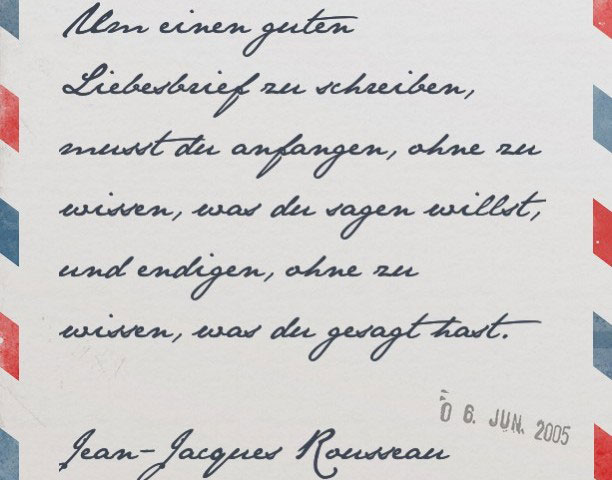 Um einen guten
Liebesbrief zu schreiben,
musst du anfangen, ohne zu
wissen, was du sagen willst,
und endigen, ohne zu
wissen, was du gesagt hast.
0 6. JUN. 2005
Jean-Jacques Rousseau